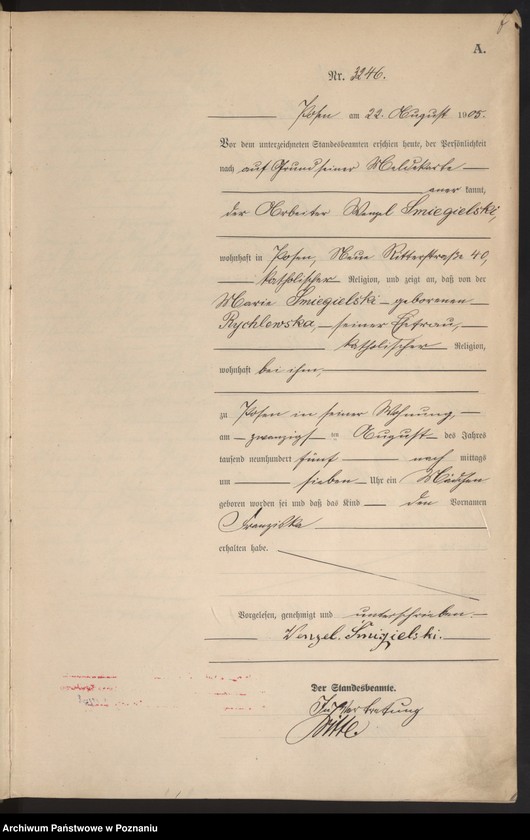 A.
Nr. 3246.
Posen am 22. August 1905.
Vor dem unterzeichneten Standesbeamten erschien heute, der Persönlichkeit
nach auf Grund seiner Meldekarte
aner kannt,
der Arbeiter Wenzel Smiegielski,
wohnhaft in Posen, Neue Ritterstraße 40,
katholischer Religion, und zeigt an, daß von der
Marie Smiegielski geborenen
Rychlewska, seiner Ehefrau,
katholischer Religion,
wohnhaft bei ihm,
zu Posen in seiner Wohnung,
am zwanzigsten August des Jahres
tausend neunhundert fünf nach mittags
um sieben Uhr ein Mädchen
geboren worden sei und daß das Kind den Vornamen
Franziska
erhalten habe.
Vorgelesen, genehmigt und unterschrieben
Wenzel. Śmigielski.
Der Standesbeamte.
In Vertretung
Archiwum Państwowe w Poznaniu